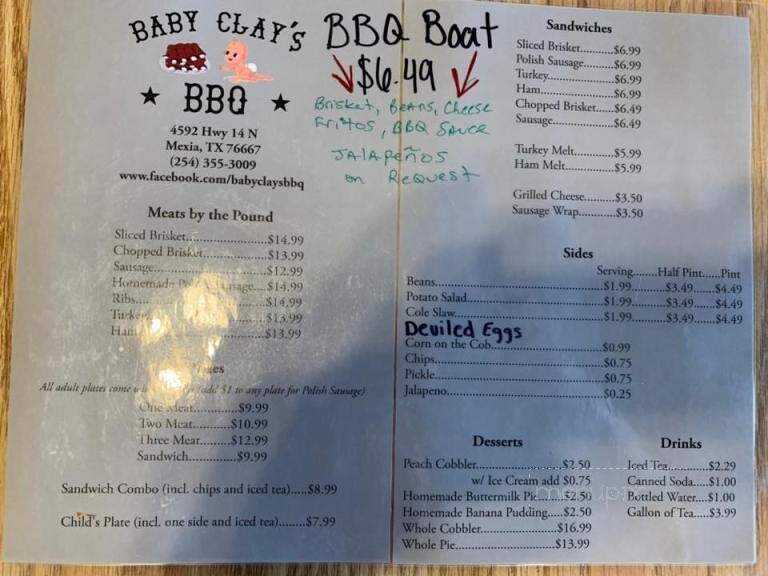 BABY CLAY'S
BBQ
4592 Hwy 14 N
Mexia, TX 76667
(254) 355-3009
www.facebook.com/babyclaysbbq
BBQ Boat
$6.49
Brisket, Beans, Cheese
Fritos, BBQ Sauce
Jalapeños
on Request
Meats by the Pound
Sliced Brisket.....................$14.99
Chopped Brisket................$13.99
Sausage.............................$12.99
Homemade Polish Sausage....$14.99
Ribs..................................$14.99
Turkey..............................$13.99
Ham.................................$13.99
All adult plates come add $1 to any plate for Polish Sausage)
One Meat.............$9.99
Two Meat...........$10.99
Three Meat.........$12.99
Sandwich..............$9.99
Sandwich Combo (incl. chips and iced tea).....$8.99
Child's Plate (incl. one side and iced tea).......$7.99
Sandwiches
Sliced Brisket..........$6.99
Polish Sausage........$6.99
Turkey....................$6.99
Ham.......................$6.99
Chopped Brisket.....$6.49
Sausage...................$6.49
Turkey Melt............$5.99
Ham Melt...............$5.99
Grilled Cheese.........$3.50
Sausage Wrap..........$3.50
Sides
Serving........Half Pint......Pint
Beans..........................................$1.99.........$3.49......$4.49
Potato Salad..................................$1.99.........$3.49......$4.49
Cole Slaw.....................................$1.99.........$3.49......$4.49
Deviled Eggs
Corn on the Cob...........................$0.99
Chips...........................................$0.75
Pickle...........................................$0.75
Jalapeno.......................................$0.25
Desserts
Peach Cobbler......................$2.50
w/ Ice Cream add $0.75
Homemade Buttermilk Pie......$2.50
Homemade Banana Pudding.....$2.50
Whole Cobbler.....................$16.99
Whole Pie............................$13.99
Drinks
Iced Tea...............$2.29
Canned Soda.....$1.00
Bottled Water....$1.00
Gallon of Tea.....$3.99